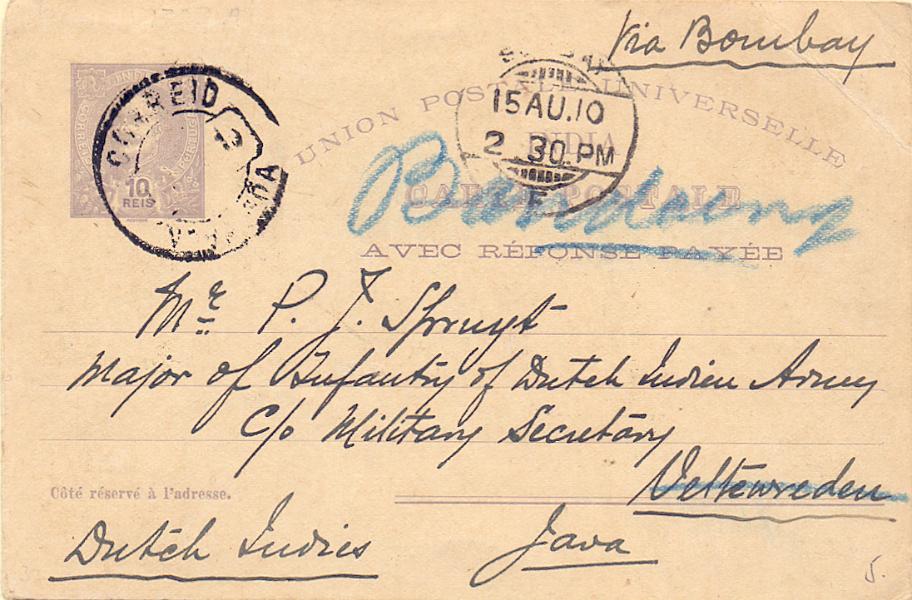 Via Bombay
UNION POSTALE UNIVERSELLE
INDIA
CARTE POSTALE
AVEC RÉPONSE PAYÉE
10
REIS
CORREIO
15 AU.10
2 30.PM
Bandoeng
Mr P. J. Spruyt
Major of Infantry of Dutch Indien Army
c/o Military Secretary
Côté réservé à l'adresse.
Veltewreden
Dutch Indies
Java
5.